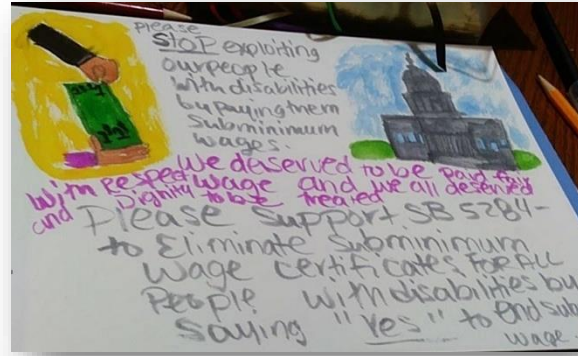 please
STOP exploiting
our people
with disabilities
by paying them
subminimum
wages.
We deserved to be paid fair
With Respect wage and we all deserved
and Dignity to be treated
Please support SB 5284-
to Eliminate subminimum
wage certificates FOR ALL
People with disabilities by
saying "Yes" to end sub
wage